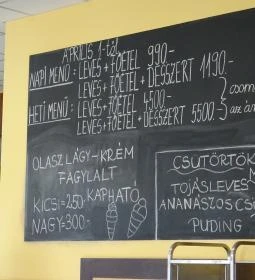 ÁPRILIS 1-től
NAPI MENÜ: LEVES+FŐÉTEL 990.-
LEVES+FŐÉTEL+DESSZERT 1190.-
HETI MENÜ: LEVES+FŐÉTEL 4500.-
LEVES+FŐÉTEL+DESSZERT 5500
OLASZ LÁGY-KRÉM
FAGYLALT
KAPHATÓ
KICSI=250.-
NAGY=300.-
CSÜTÖRTÖK
TOJÁSLEVES
ANANÁSZOS CS
PUDING